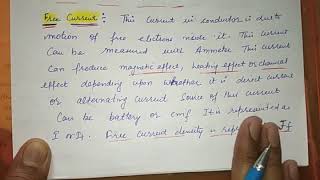 Free Current :- This current in conductor is due to
motion of free elections inside it. This current
Can be measured with Ammete This current
Can produce magnetic effect, heating effect or chemical
effect depending upon whether it is direct current
or alternating current Source of this current
Can be battery or emf It is represented as
I or If. Free current density is rep Jf